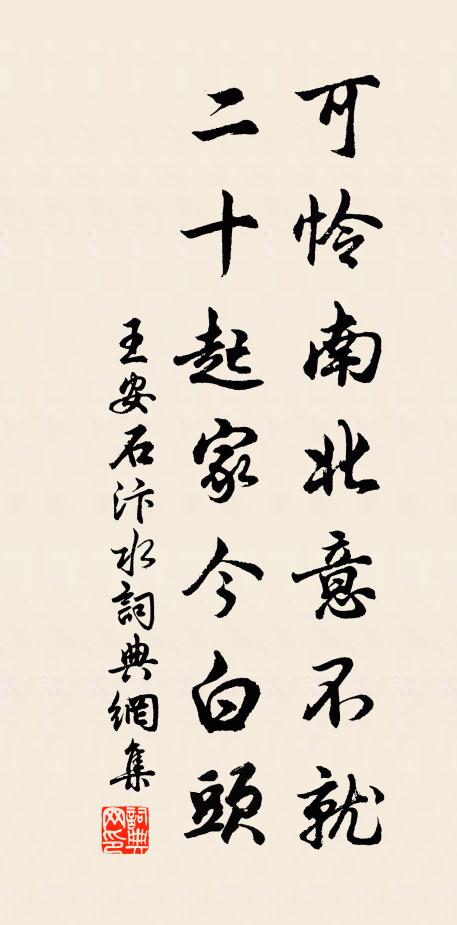 可怜南北意不就
二十起家今白頭
王安石汴水詞典網集
詞典网印